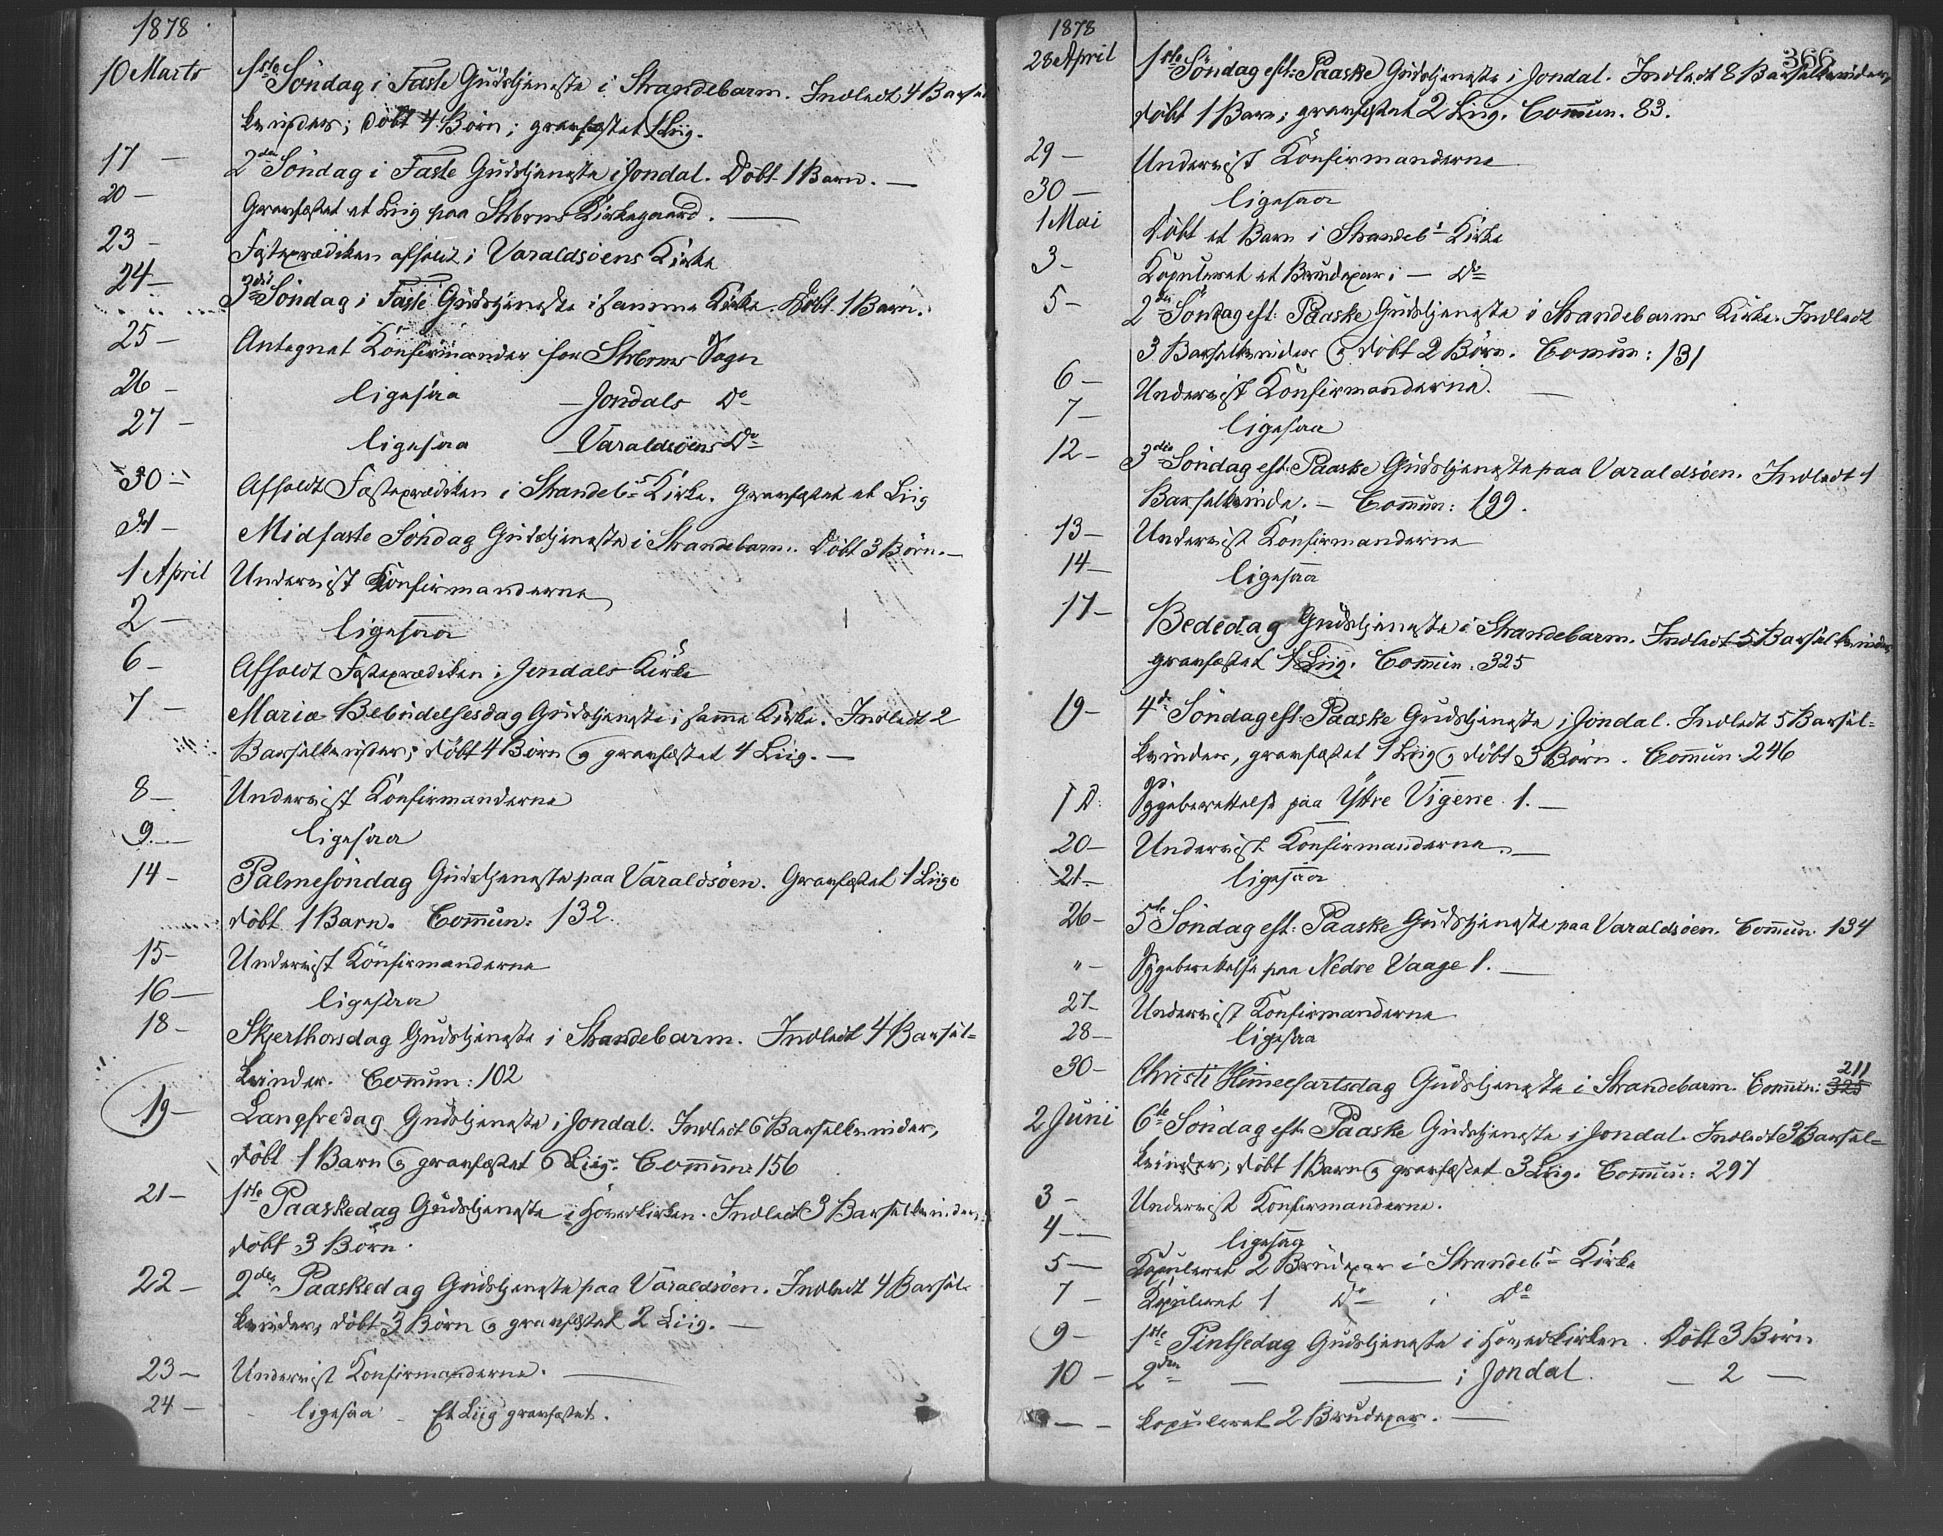 1878
10 Marts 1ste Søndag i Faste Gudstjeneste i Strandebarm. Indledt 4 Barsel
kvinder; døbt 4 Børn; gravfæstet 1 Liig.
17 — 2den Søndag i Faste Gudstjeneste i Jondal. Døbt 1 Barn. —
20 — Gravfæstet et Liig paa Strbrms Kirkegaard. —
23 — Fasteprædiken afholdt i Varaldsøens Kirke
24 — 3die Søndag i Faste Gudstjeneste i samme Kirke. Døbt 1 Barn.
25 — Antegnet Konfirmander for Strbrms Sogn
26 — ligesaa — Jondals Do
27 — ligesaa Varaldsøens Do
30 — Afholdt Fasteprædiken i Strandebs Kirke. Gravfæstet et Liig
31 — Midfaste Søndag Gudstjeneste i Strandebarm. Døbt 3 Børn. —
1 April Undervist Konfirmanderne
2 — ligesaa
6 — Afholdt Fasteprædiken i Jondals Kirke
7 — Mariæ Bebudelsesdag Gudstjeneste i samme Kirke. Indledt 2
Barselkvinder; døbt 4 Børn og gravfæstet 4 Liig. —
8 — Undervist Konfirmanderne
9 — ligesaa
14 — Palmesøndag Gudstjeneste paa Varaldsøen. Gravfæstet 1 Liig
døbt 1 Barn. Commun: 132.
15 — Undervist Konfirmanderne
16 — ligesaa
18 — Skjerthorsdag Gudstjeneste i Strandebarm. Indledt 4 Barsel-
kvinder. Commun: 102
19 — Langfredag Gudstjeneste i Jondal. Indledt 6 Barselkvinder,
døbt 1 Barn og gravfæstet 6 Liig. Commun: 156
21 — 1ste Paaskedag Gudstjeneste i Hovedkirken. Indledt 3 Barselkvinder
døbt 3 Børn.
22 — 2den Paaskedag Gudstjeneste paa Varaldsøen. Indledt 4 Barsel-
kvinder, døbt 3 Børn og gravfæstet 2 Liig. —
23 — Undervist Konfirmanderne. —
24 — ligesaa — Et Liig gravfæstet.
1878
366
28 April 1ste Søndag eft: Paaske Gudstjeneste i Jondal. Indledt 8 Barselkvinder,
døbt 1 Barn; gravfæstet 2 Liig. Commun. 83.
29 — Undervist Konfirmanderne
30 — ligesaa
1 Mai Døbt et Barn i Strandebs Kirke
3 — Kopuleret et Brudepar i — Do
5 — 2den Søndag eft: Paaske Gudstjeneste i Strandebarms Kirke. Indledt
3 Barselkvinder og døbt 2 Børn. Comun: 131
6 — Undervist Konfirmanderne. —
7 — ligesaa
12 — 3die Søndag eft: Paaske Gudstjeneste paa Varaldsøen. Indledt 1
Barselkvinde. — Commun: 199.
13 — Undervist Konfirmanderne
14 — ligesaa
17 — Bededag Gudstjeneste i Strandebarm. Indledt 5 Barselkvinder
gravfæstet 1 Liig. Commun: 325
19 — 4de Søndag eft: Paaske Gudstjeneste i Jondal. Indledt 5 Barsel-
kvinder, gravfæstet 1 Liig og døbt 3 Børn. Commun: 246
S. D. Sygeberettelse paa Yttre Vigene 1. —
20 — Undervist Konfirmanderne. —
21 — ligesaa
26 — 5te Søndag eft: Paaske Gudstjeneste paa Varaldsøen. Commun. 134
" — Sygeberettelse paa Nedre Vaage 1. —
27 — Undervist Konfirmanderne
28 — ligesaa
30 — Christi Himmelfartsdag Gudstjeneste i Strandebarm. Commun: 325 211
2 Juni 6te Søndag eft: Paaske Gudstjeneste i Jondal. Indledt 3 Barsel-
kvinder; døbt 1 Barn og gravfæstet 3 Liig. Commun: 297
3 — Undervist Konfirmanderne.
4 — ligesaa
5 — Kopuleret 2 Brudepar i Strandebs Kirke
7 — Kopuleret 1 Do i Do
9 — 1ste Pintsedag Gudstjeneste i Hovedkirken. Døbt 3 Børn
10 — 2den — — i Jondal. — 2 —
— — Kopuleret 2 Brudepar. —